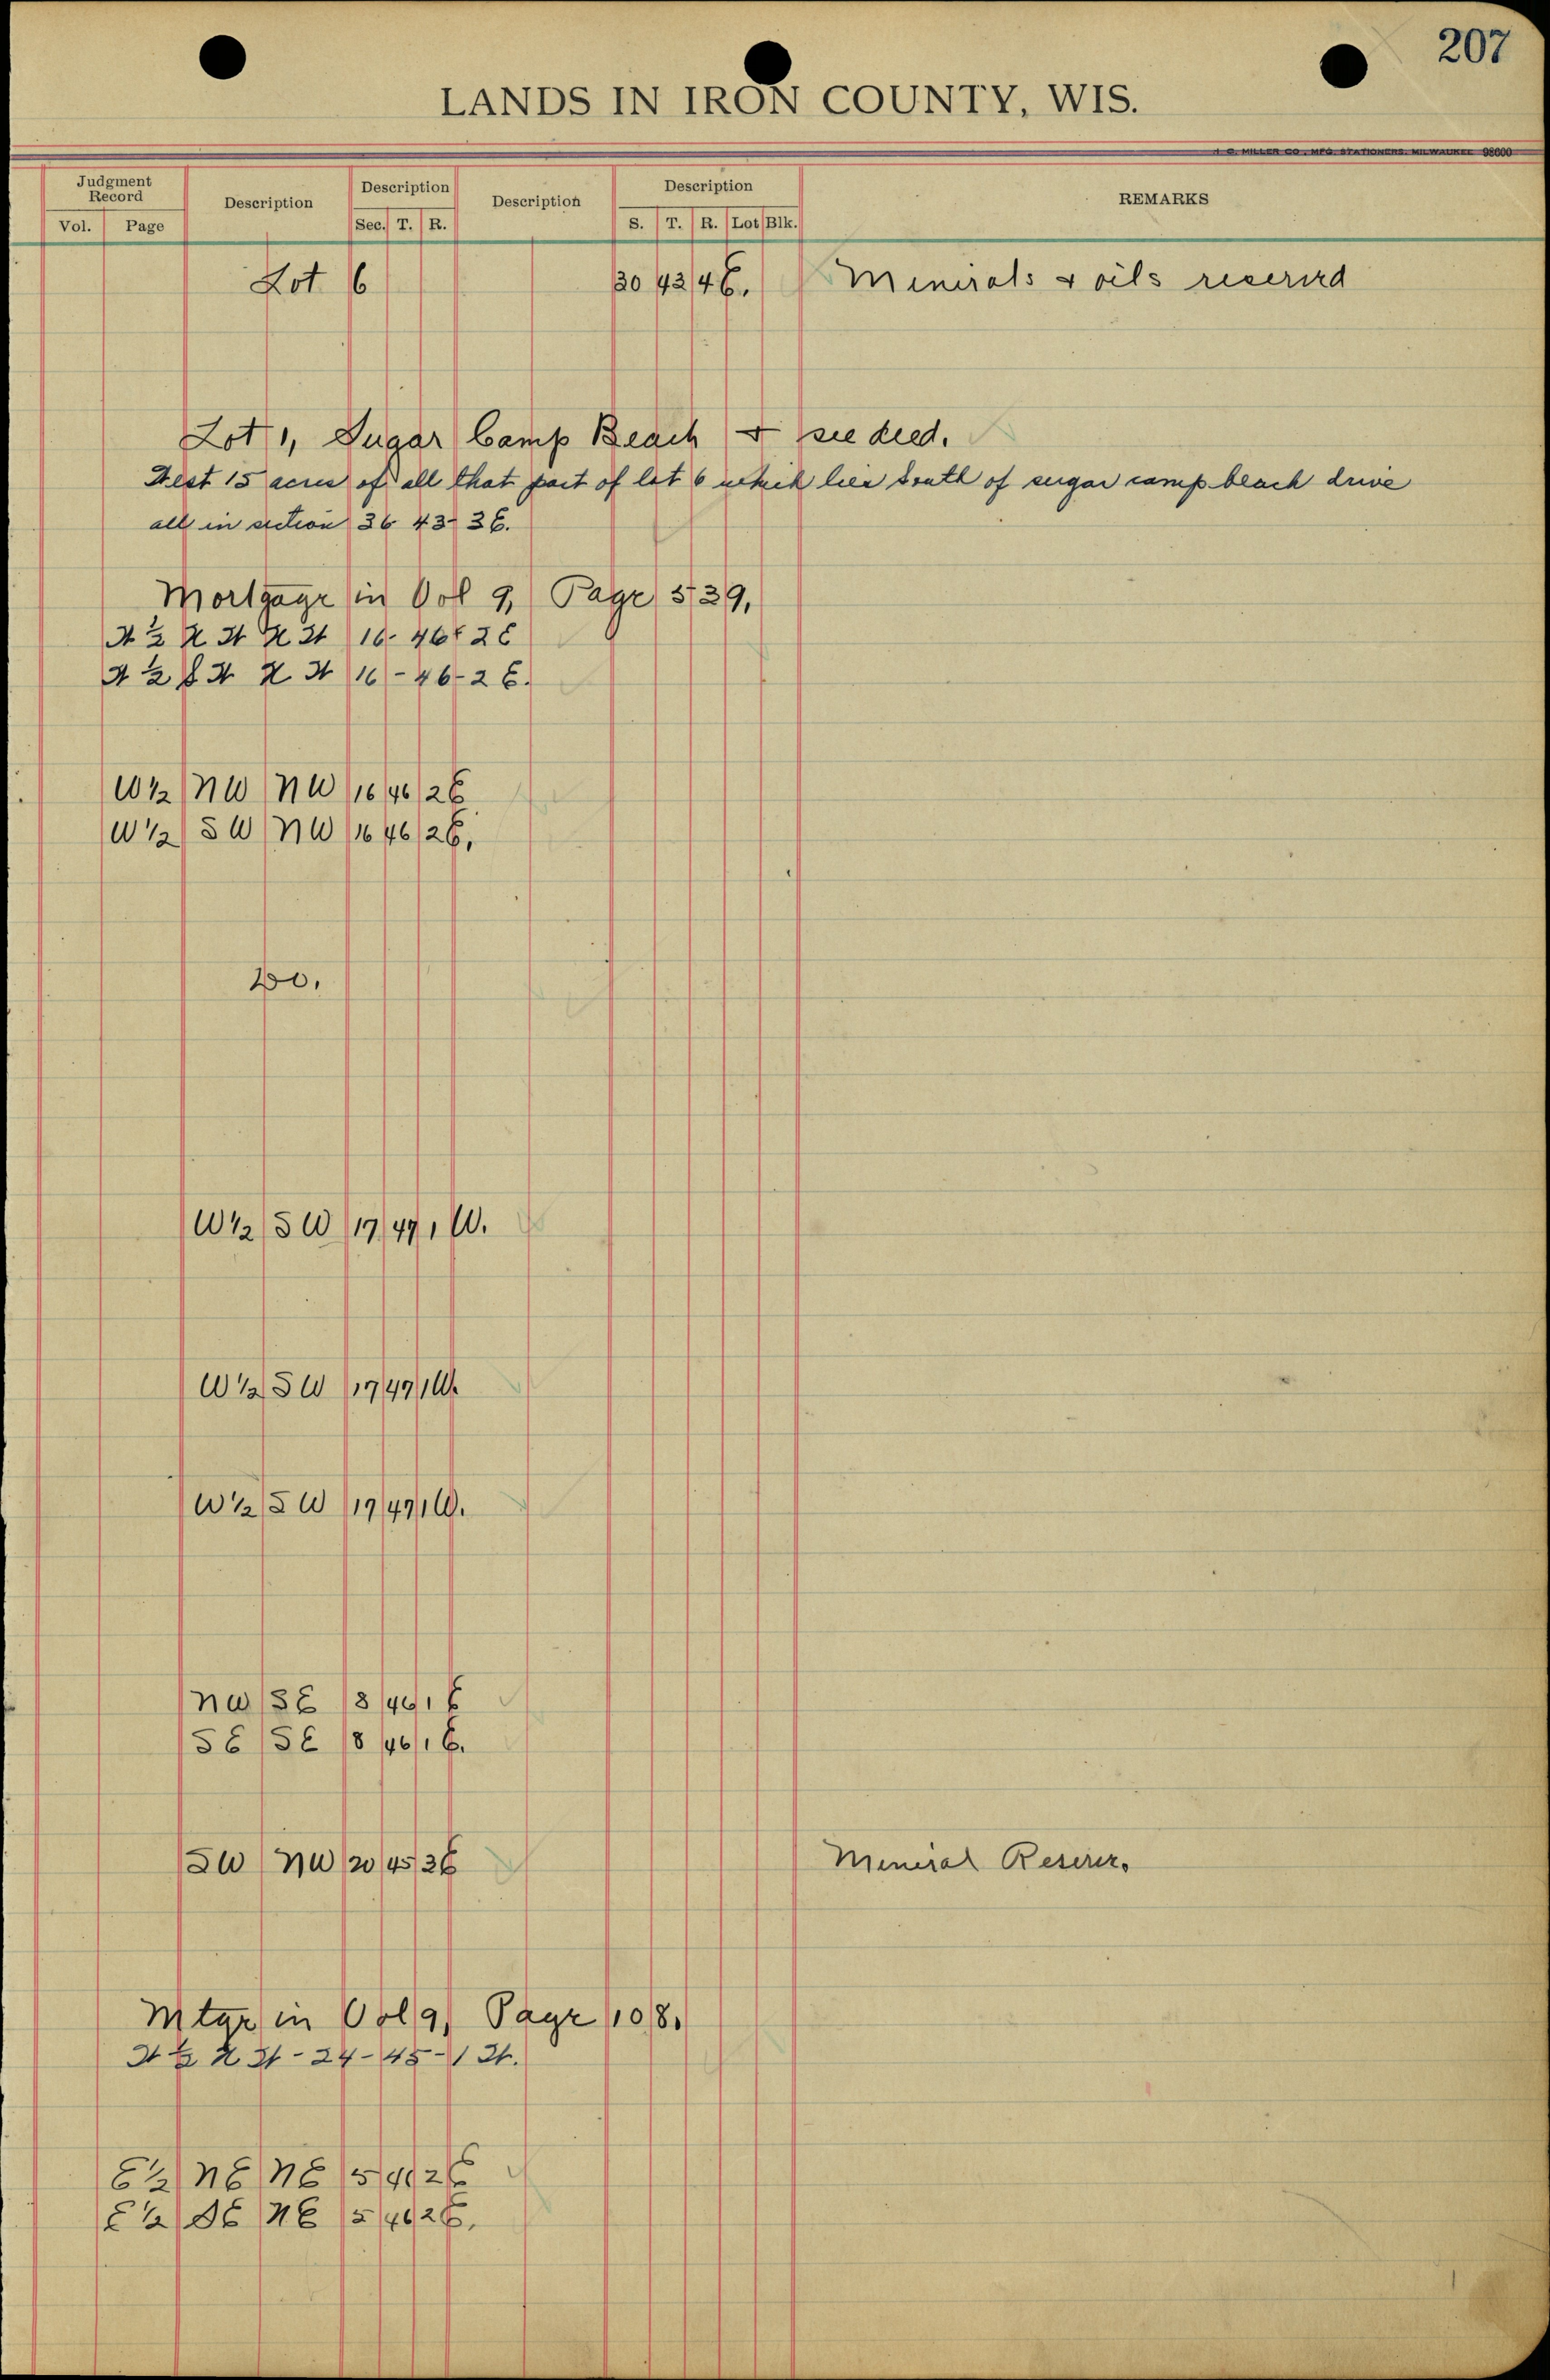 207
LANDS IN IRON COUNTY, WIS.
J. C. MILLER CO., MFG. STATIONERS, MILWAUKEE 98600
Judgment Record Description Description Description Description REMARKS
Vol. Page Sec. T. R. S. T. R. Lot Blk.
Lot 6 30 42 4 E. Minerals & oils reserved
Lot 1, Sugar Camp Beach & see deed.
West 15 acres of all that part of lot 6 which lies South of sugar camp beach drive
all in section 36 43- 3E.
Mortgage in Vol 9, Page 539,
W ½ N W N W 16- 46- 2E
W ½ S W N W 16 - 46 - 2 E.
W½ NW NW 16 46 2E
W½ SW NW 16 46 2E,
Do.
W½ SW 17 47 1 W.
W½ SW 17 47 1 W.
W½ SW 17 47 1 W.
NW SE 8 46 1 E
SE SE 8 46 1 E.
SW NW 20 45 3E Mineral Reserv.
Mtge in Vol 9, Page 108.
W ½ N W - 24 - 45 - 1 W.
E½ NE NE 5 46 2E
E½ SE NE 5 46 2E.